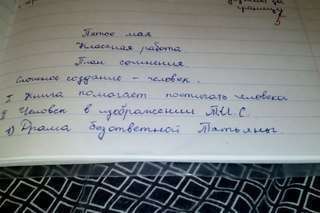 границу
Пятое мая
Классная работа
План сочинения.
Сложное создание - человек.
I Книга помогает постигать человека
II Человек в изображении Т.И.С.
1) Драма безответной Татьяны.